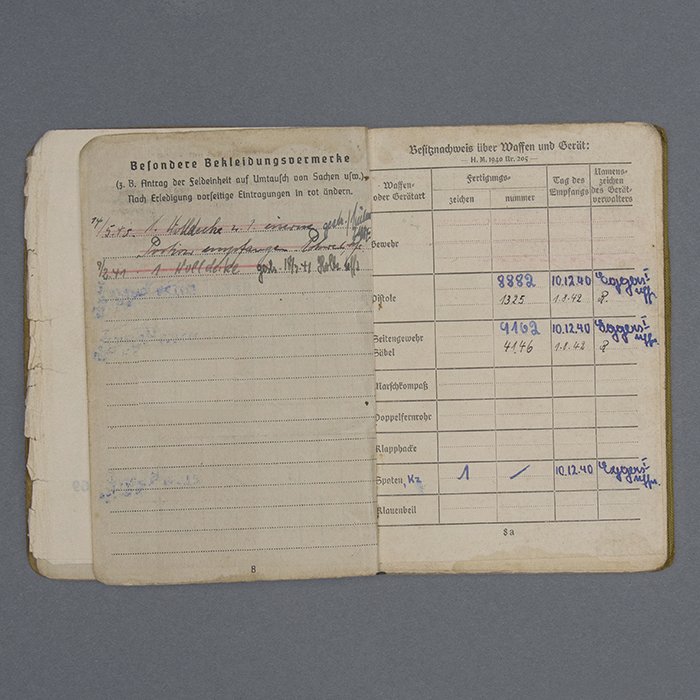 Besondere Bekleidungsvermerke
(z. B. Antrag der Feldeinheit auf Umtausch von Sachen usw.).
Nach Erledigung vorseitige Eintragungen in rot ändern.
1 Wolldecke
empfangen
1 Wolldecke
8
Besitznachweis über Waffen und Gerät:
— H. M. 1940 Nr. 205 —
Waffen- oder Geräteart
Fertigungs-
zeichen
nummer
Tag des Empfangs
Namens-zeichen des Gerät-verwalters
Gewehr
Pistole 8882 10.12.40 Eggers Uffz.
1325 1.8.42 P.
Seitengewehr 9162 10.12.40 Eggers Uffz.
Säbel 4146 1.8.42 P
Marschkompaß
Doppelfernrohr
Klapphacke
Spaten, Kz 1 10.12.40 Eggers Uffz.
Klauenbeil
8a